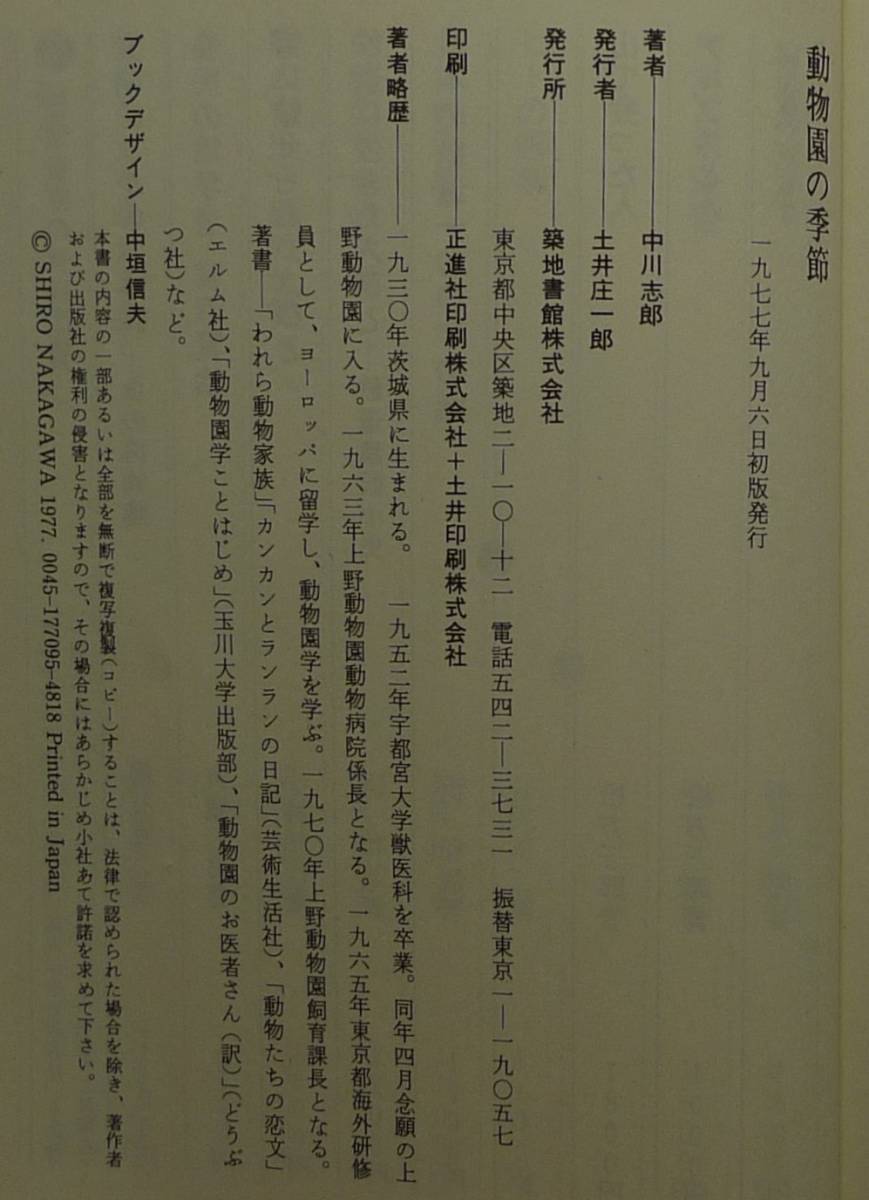 動物園の季節
一九七七年九月六日初版発行
著者――中川志郎
発行者――土井庄一郎
発行所――築地書館株式会社
東京都中央区築地二―一〇―十二　電話五四二―三七三一　振替東京一―一九〇五七
印刷――正進社印刷株式会社＋土井印刷株式会社
著者略歴――一九三〇年茨城県に生まれる。　一九五二年宇都宮大学獣医科を卒業。同年四月念願の上
野動物園に入る。一九六三年上野動物園動物病院係長となる。一九六五年東京都海外研修
員として、ヨーロッパに留学し、動物園学を学ぶ。一九七〇年上野動物園飼育課長となる。
著書――「われら動物家族」「カンカンとランランの日記」（芸術生活社）、「動物たちの恋文」
（エルム社）、「動物園学ことはじめ」（玉川大学出版部）、「動物園のお医者さん（訳）」（どうぶ
つ社）など。
ブックデザイン―中垣信夫
本書の内容の一部あるいは全部を無断で複写複製（コピー）することは、法律で認められた場合を除き、著作者
および出版社の権利の侵害となりますので、その場合にはあらかじめ小社あて許諾を求めて下さい。
© SHIRO NAKAGAWA 1977. 0045-177095-4818 Printed in Japan